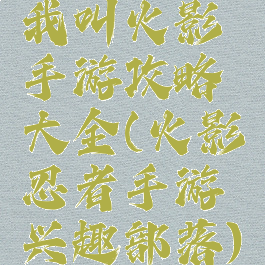 我叫火影
手游攻略
大全(火影
忍者手游
兴趣部落)